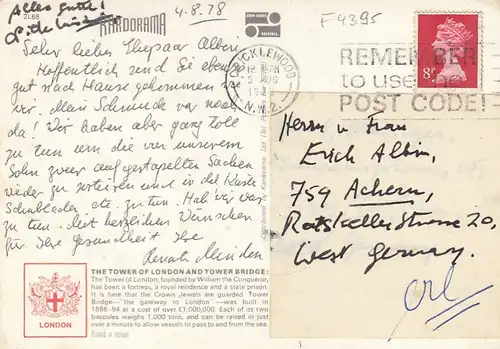 Alles Gute!
2L68
KARDORAMA
4.8.78
JOHN HINDE
ORIGINAL
F4395
Sehr liebes Ehepaar Albin,
Hoffentlich sind Sie eben
gut nach Hause gekommen
wir. Mein Schmunde war noch
da! Wir haben aber ganz toll
zu tun um die von unserem
Sohn zwar aufgestapelten Sachen
wieder zu sortieren und in die Kiste
Schublade etc. zu tun.
zu tun. Mit herzlichen Wünschen
für Ihre Gesundheit Ihre
Renate
CRICKLEWOOD
12 PM
5 AUG
N.W.2.
REMEMBER
to use the
POST CODE!
8½P
Herrn u Frau
Erich Albin,
759 Achern,
Ratskellerstrasse 20,
West Germany.
THE TOWER OF LONDON AND TOWER BRIDGE:
The Tower of London, founded by William the Conqueror,
has been a fortress, a royal residence and a state prison.
It is here that the Crown Jewels are guarded. Tower
Bridge—"the gateway to London"—was built in
1886-94 at a cost of over £1,000,000. Each of its two
bascules weighs 1,000 tons, and can be raised in just
over a minute to allow vessels to pass to and from the sea.
Printed in Ireland
LONDON